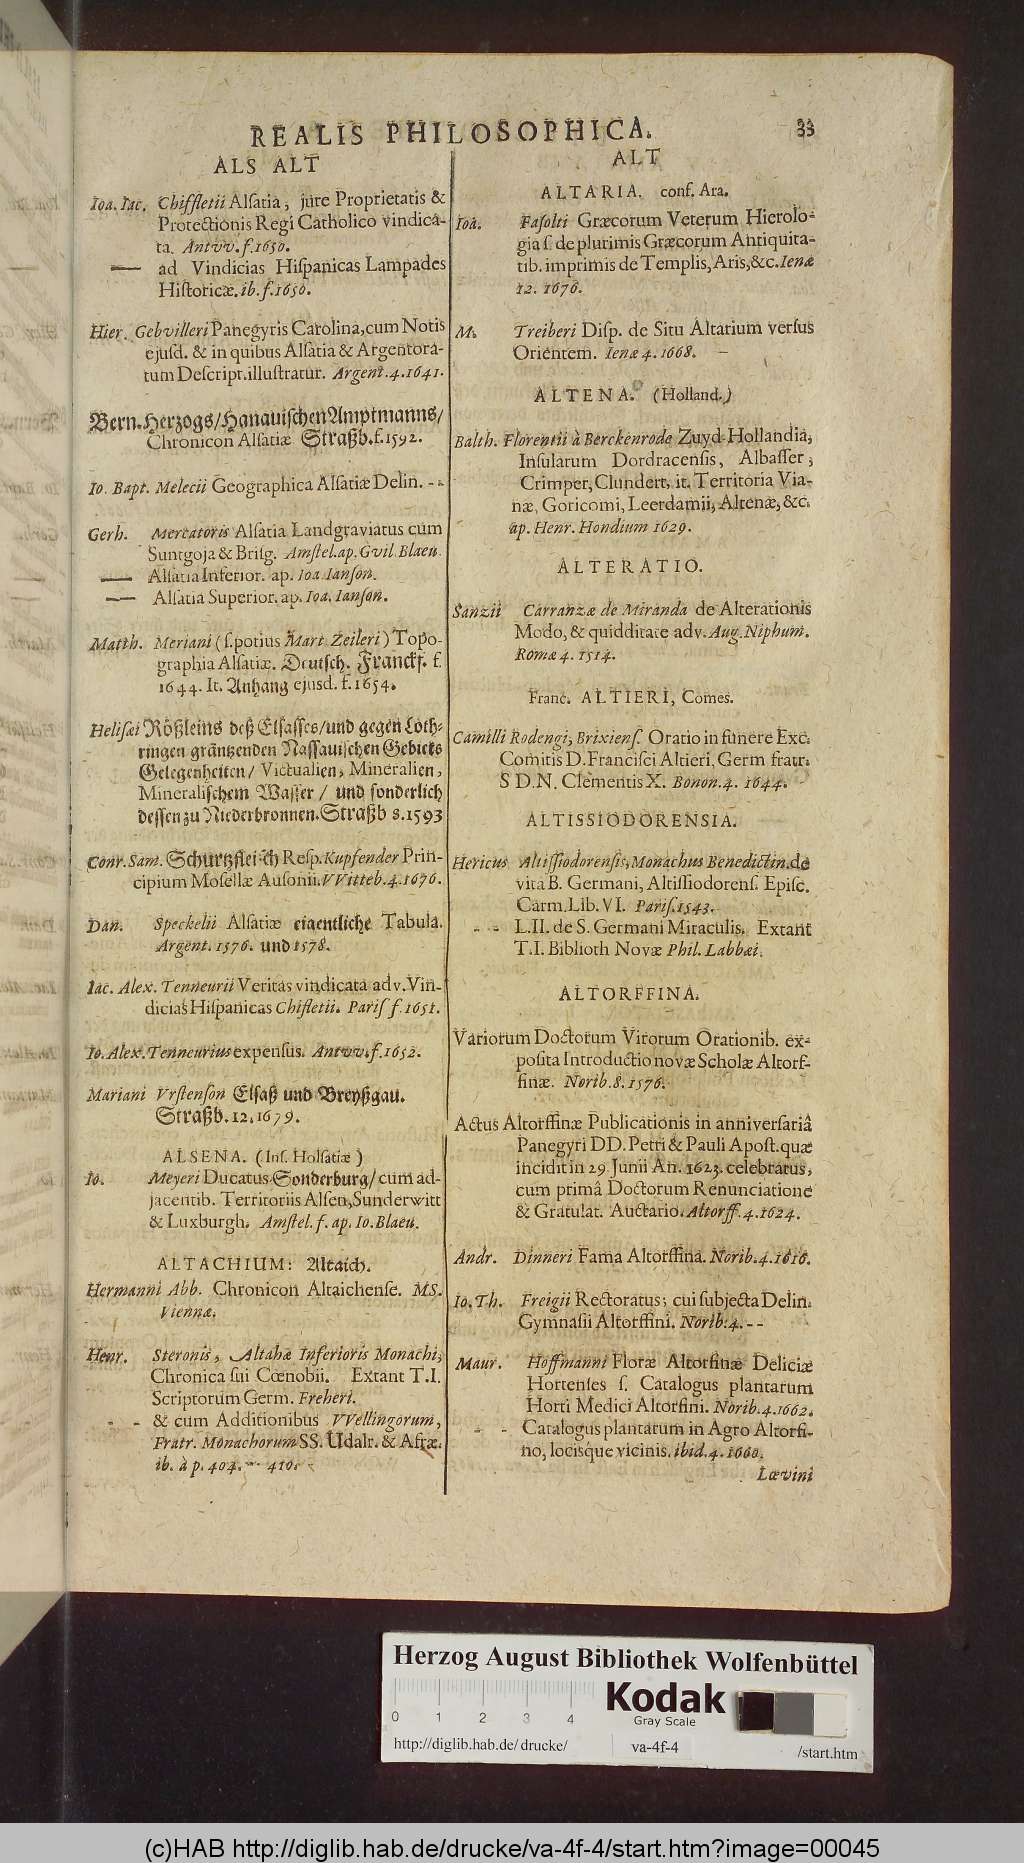 REALIS PHILOSOPHICA.
33
ALS ALT
Ioa. Iac. Chiffletii Alſatia, jure Proprietatis &
Protectionis Regi Catholico vindica-
ta. Antvv. f. 1650.
— ad Vindicias Hiſpanicas Lampades
Hiſtoricæ. ib. f. 1650.
Hier. Gebvilleri Panegyris Carolina, cum Notis
ejusd. & in quibus Alſatia & Argentora-
tum Deſcript. illuſtratur. Argent. 4. 1641.
Bern. Herzogs/Hanauiſchen Amptmanns/
Chronicon Alſatiæ Straßb. f. 1592.
Io. Bapt. Melecii Geographica Alſatiæ Delin. - -
Gerh. Mercatoris Alſatia Landgraviatus cum
Suntgoja & Briſg. Amſtel. ap. Gvil. Blaeu.
— Alſatia Inferior. ap. Ioa. Ianſon.
— Alſatia Superior. ap. Ioa. Ianſon.
Matth. Meriani (ſ. potius Mart. Zeileri) Topo-
graphia Alſatiæ. Deutſch. Franckf. f.
1644. It. Anhang ejusd. f. 1654.
Heliſæi Rößleins deß Elſaſſes/und gegen Loth-
ringen gräntzenden Naſſauiſchen Gebiets
Gelegenheiten/ Victualien, Mineralien,
Mineraliſchem Waſſer / und ſonderlich
deſſen zu Niederbronnen. Straßb 8. 1593
Conr. Sam. Schurtzfleiſch Reſp. Kupfender Prin-
cipium Moſellæ Auſonii. VVitteb. 4. 1676.
Dan. Speckelii Alſatiæ eigentliche Tabula.
Argent. 1576. und 1578.
Iac. Alex. Tenneurii Veritas vindicata adv. Vin-
dicias Hiſpanicas Chifletii. Pariſ f. 1651.
Io. Alex. Tenneurius expenſus. Antvv. f. 1652.
Mariani Vrſtenſon Elſaß und Breyßgau.
Straßb. 12. 1679.
ALSENA. (Inſ. Holſatiæ)
Io. Meyeri Ducatus Sonderburg/ cum ad-
jacentib. Territoriis Alſen, Sunderwitt
& Luxburgh. Amſtel. f. ap. Io. Blaeu.
ALTACHIUM: Altaich.
Hermanni Abb. Chronicon Altaichenſe. MS.
Viennæ.
Henr. Steronis, Altahæ Inferioris Monachi,
Chronica ſui Cœnobii. Extant T. I.
Scriptorum Germ. Freheri.
- - & cum Additionibus VVellingorum,
Fratr. Monachorum SS. Udalr. & Afræ.
ib. à p. 404. -- 410.
ALT
ALTARIA. conf. Ara.
Ioa. Faſolti Græcorum Veterum Hierolo-
gia ſ. de plurimis Græcorum Antiquita-
tib. imprimis de Templis, Aris, &c. Ienæ
12. 1676.
M. Treiberi Diſp. de Situ Altarium verſus
Orientem. Ienæ 4. 1668. –
ALTENA. (Holland.)
Balth. Florentii à Berckenrode Zuyd-Hollandia,
Inſularum Dordracenſis, Albaſſer,
Crimper, Clundert, it. Territoria Via-
næ, Goricomi, Leerdamii, Altenæ, &c.
ap. Henr. Hondium 1629.
ALTERATIO.
Sanzii Carranzæ de Miranda de Alterationis
Modo, & quidditate adv. Aug. Niphum.
Romæ 4. 1514.
Franc. ALTIERI, Comes.
Camilli Rodengi, Brixienſ. Oratio in funere Exc.
Comitis D. Franciſci Altieri, Germ fratr.
S D. N. Clementis X. Bonon. 4. 1644.
ALTISSIODORENSIA.
Hericus Altiſſiodorenſis, Monachus Benedictin. de
vita B. Germani, Altiſſiodorenſ. Epiſc.
Carm. Lib. VI. Pariſ. 1543.
- - L. II. de S. Germani Miraculis. Extant
T. I. Biblioth Novæ Phil. Labbæi.
ALTORFFINA.
Variorum Doctorum Virorum Orationib. ex-
poſita Introductio novæ Scholæ Altorf-
finæ. Norib. 8. 1576.
Actus Altorffinæ Publicationis in anniverſariâ
Panegyri DD. Petri & Pauli Apoſt. quæ
incidit in 29 Junii An. 1623. celebratus,
cum primâ Doctorum Renunciatione
& Gratulat. Auctario. Altorff. 4. 1624.
Andr. Dinneri Fama Altorffina. Norib. 4. 1616.
Io. Th. Freigii Rectoratus, cui ſubjecta Delin.
Gymnaſii Altorffini. Norib. 4. - -
Maur. Hoffmanni Floræ Altorfinæ Deliciæ
Hortenſes ſ. Catalogus plantarum
Horti Medici Altorfini. Norib. 4. 1662.
- - Catalogus plantarum in Agro Altorfi-
no, locisque vicinis. ibid. 4. 1660.
Lævini
Herzog August Bibliothek Wolfenbüttel
Kodak
Gray Scale
0 1 2 3 4
http://diglib.hab.de/ drucke/ va-4f-4 /start.htm
(c)HAB http://diglib.hab.de/drucke/va-4f-4/start.htm?image=00045